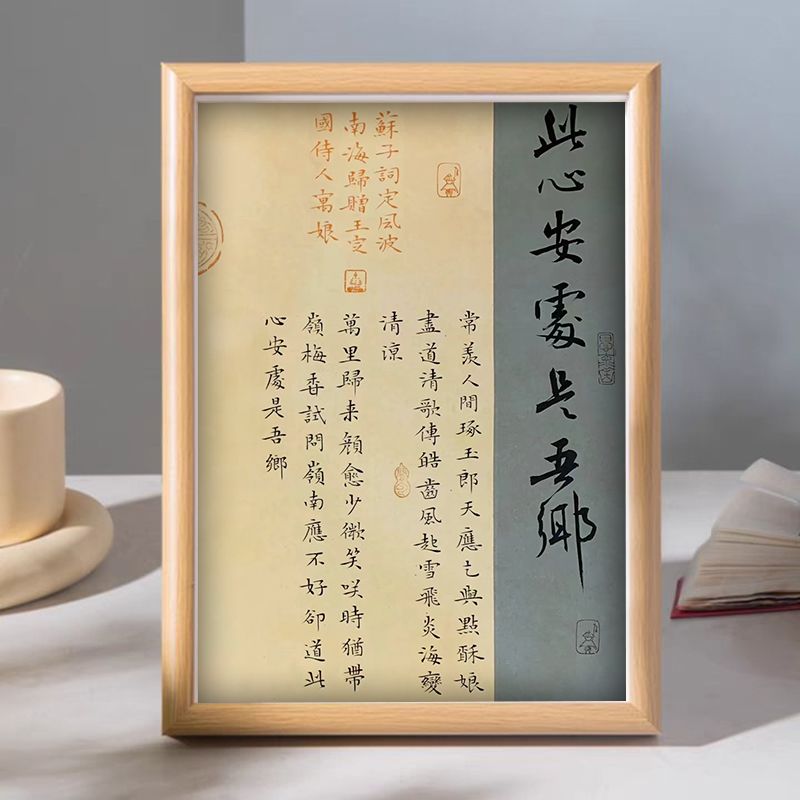 此心安處是吾鄉
蘇子詞定風波
南海歸贈王定
國侍人寓娘
常羨人間琢玉郎天應乞與點酥娘
盡道清歌傳皓齒風起雪飛炎海變
清涼
萬里歸来顏愈少微笑咲時猶帶
嶺梅香試問嶺南應不好卻道此
心安處是吾鄉